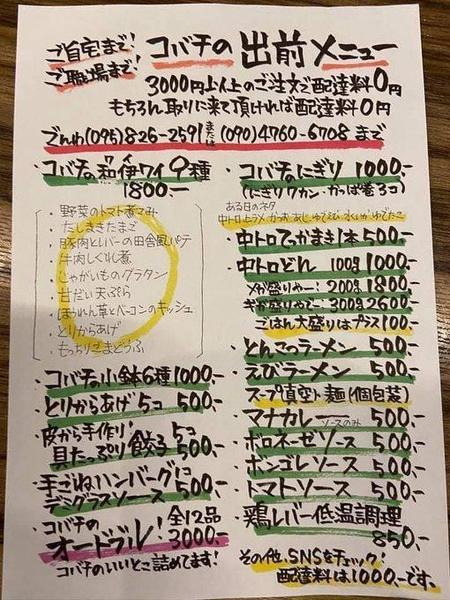 ご自宅まで!
ご職場まで!
コバチの出前メニュー
3000円以上のご注文で配達料0円
もちろん取りに来て頂ければ配達料0円
でんわ(095)826-2591または(090)4760-6708まで
・コバチの和伊ワイ9種
1800.-
・野菜のトマト煮こみ
・だしまきたまご
・豚肉とレバーの田舎風パテ
・牛肉しぐれ煮
・じゃがいものグラタン
・甘だい天ぷら
・ほうれん草とベーコンのキッシュ
・とりからあげ
・もっちりごまどうふ
・コバチの小鉢6種1000.-
・とりからあげ5コ 500.-
・皮から手作り!
具たっぷり餃子 5コ 500.-
・手ごねハンバーグ1コ
デミグラスソース 500.-
・コバチの
オードブル! 全12品
3000.-
コバチのいいとこ詰めてます!
・コバチのにぎり 1000.-
(にぎり7カン・かっぱ巻3コ)
ある日のネタ
中トロ ヒラメ かつお あじ ゆでえび 水いか ゆでたこ
・中トロてっかまき1本500.-
・中トロどん 100g 1000.-
メガ盛りやー! 200g 1800.-
ギガ盛りやでー! 300g 2600.-
ごはん大盛りはプラス100.-
・とんこつラーメン 500.-
・えびラーメン 500.-
スープ(真空)・麺(個包装)
・マナカレー ソースのみ 500.-
・ボロネーゼソース 500.-
・ボンゴレソース 500.-
・トマトソース 500.-
・鶏レバー低温調理
850.-
その他、SNSをチェック!
配達料は1000.-です。